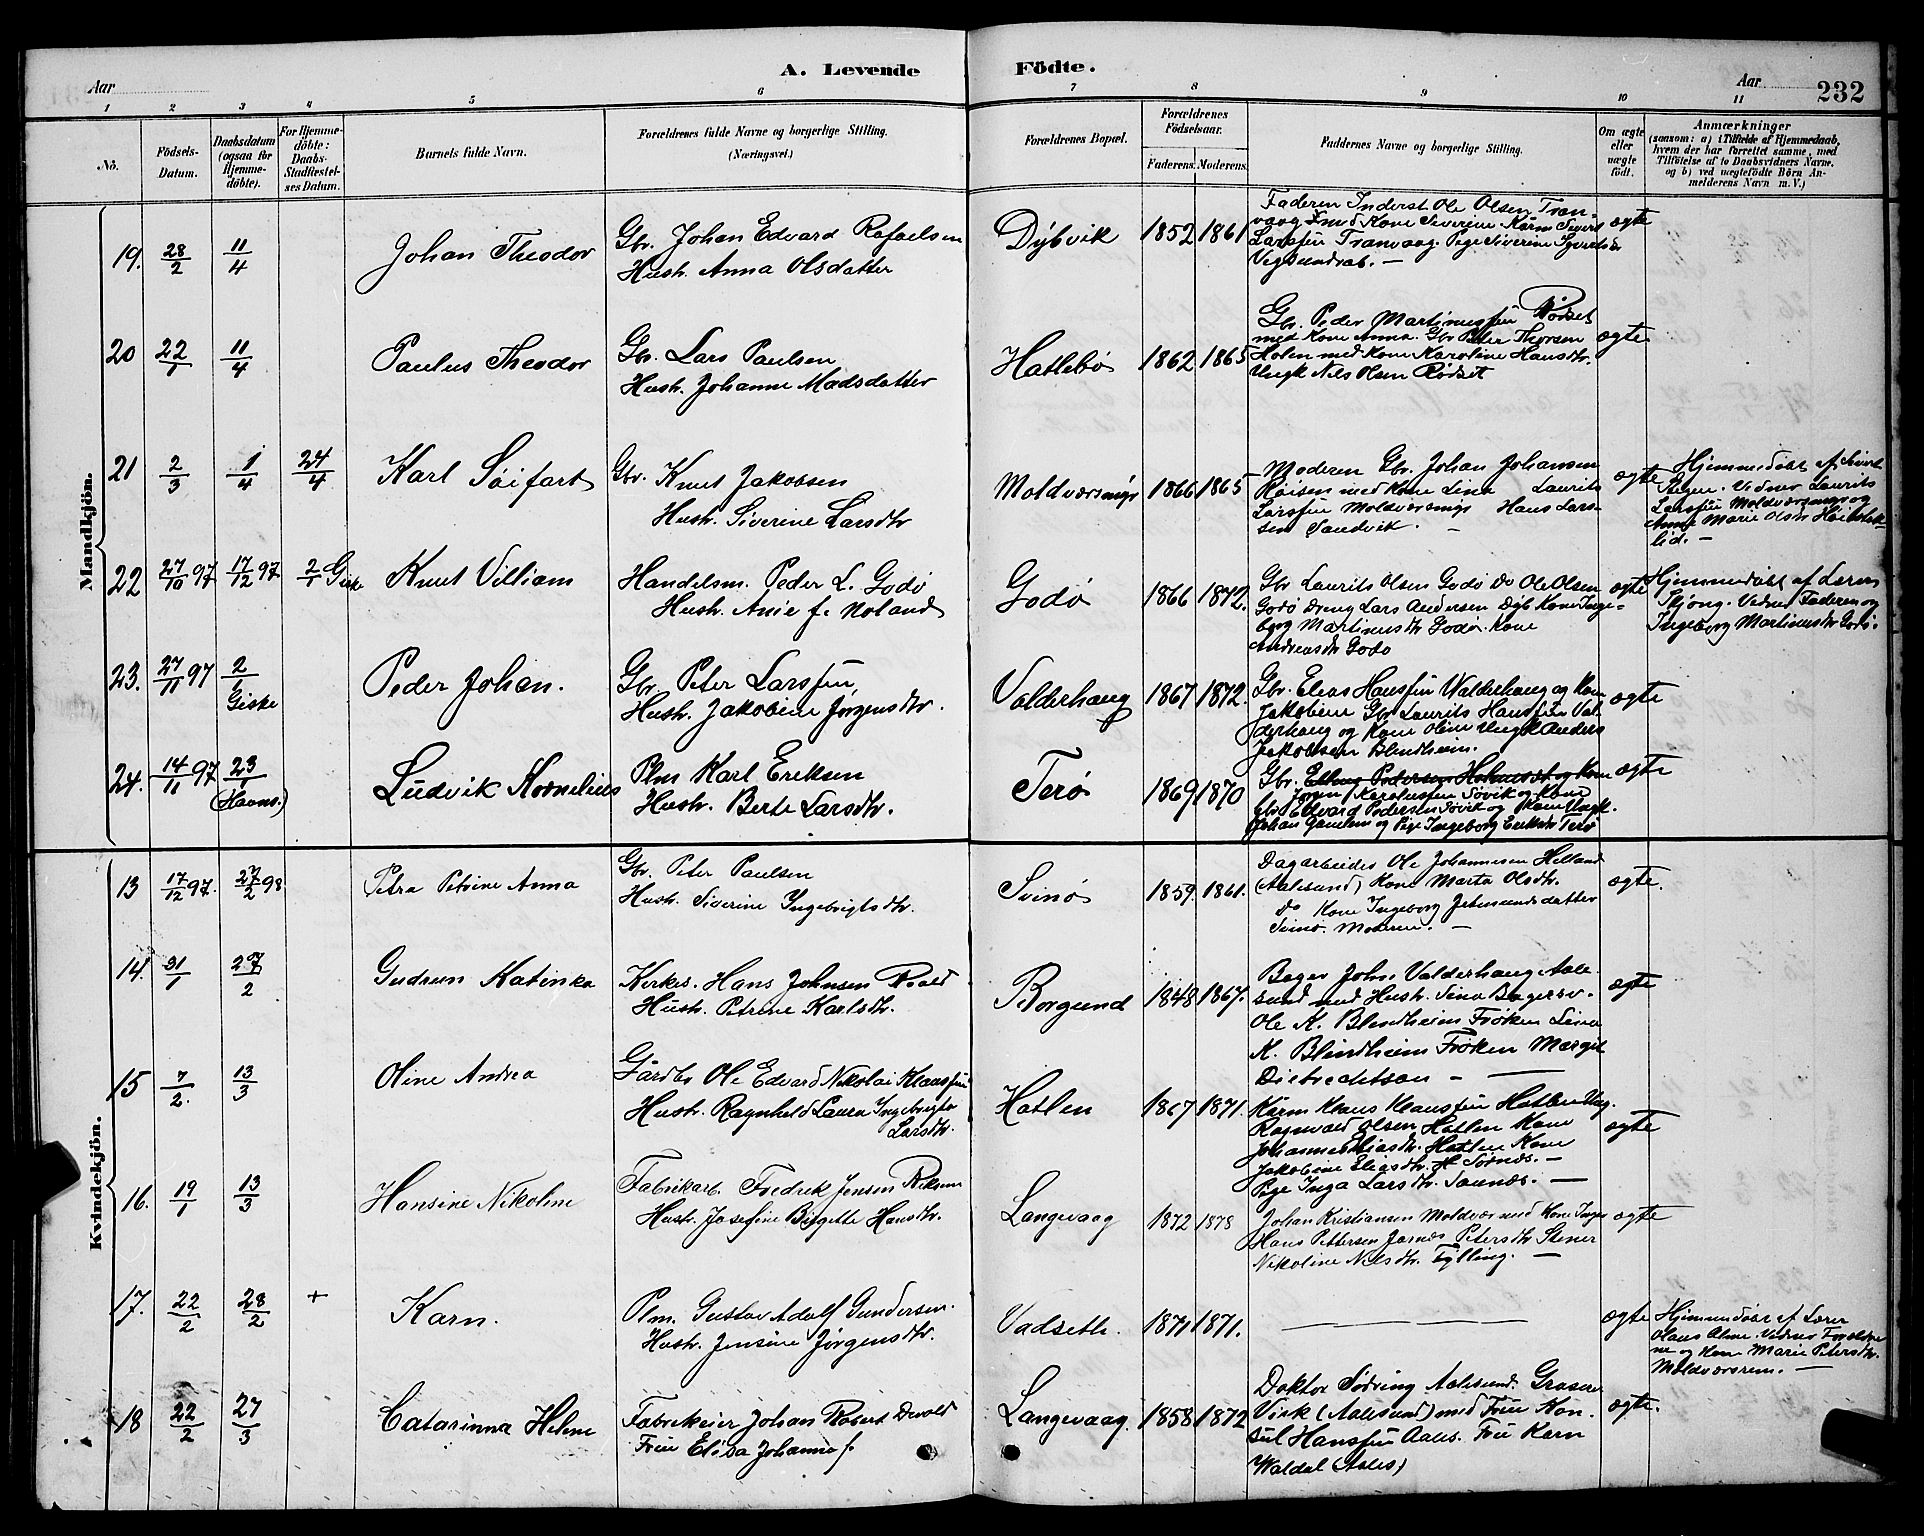 A. Levende Födte.
Aar
Aar
232
1 2 3 4 5 6 7 8 9 10 11
Nô.
Födsels-Datum.
Daabsdatum (ogsaa for Hjemmedöbte).
For Hjemmedöbte: Daabs-Stadfæstelses Datum.
Barnets fulde Navn.
Forældrenes fulde Navne og borgerlige Stilling. (Næringsvei.)
Forældrenes Bopæl.
Forældrenes Födselsaar.
Faderens. Moderens.
Faddernes Navne og borgerlige Stilling.
Om ægte eller uægte födt.
Anmærkninger
(saasom: a) i Tilfælde af Hjemmedaab, hvem der har forrettet samme, med Tilföielse af to Daabsvidners Navne, og b) ved uægtefödte Börn Anmelderens Navn m. V.)
Mandkjön.
19. 28/2 11/4 Johan Theodor
Gbr. Johan Edvard Rafaelsen
Hust. Anna Olsdatter
Dybvik 1852 1861
Faderen Inderst Ole Olsen Tran-
vaag med Kone Severine Kårm Sivert
Larssen Tranvaag. Pige Siverine
Vegsundrab. —
ægte
20 22/1 11/4 Paulus Theodor
Gbr. Lars Paulsen
Hust. Johanne Madsdatter
Hatlebø 1862 1865
Gbr. Peder Martinussen Rødset
med Kone Anna. Gbr Peter Thorsen
Holen med Kone Karoline Hansdtr.
Ungk Nils Olsen Rødset
ægte
21 2/3 1/4 24/4 Karl Söifart
Gbr. Knut Jakobsen
Hust. Siverine Larsdtr
Moldværsmyr 1866 1865
Moderen Gbr. Johan Johansen
Røisen med Kone Lina Laurits
Larssen Moldværsmyr Hans Lars-
sen Sandvik. —
ægte
Hjemmedøbt af Sivert
Vidner Laurits
Larssen Moldværsmyr og
Anne Marie Olsdr
lid. —
22 27/10 97 17/12 97 2/1 Giske Knut Villiam
Handelsm. Peder L. Godø
Hust. Anie f. Roland
Godø 1866 1872.
Gbr Laurits Olsen Godø Do Ole Olsen
Godø Dreng Lars Andersen Dyb Kone Inge-
borg Martinusdtr Godø. Kone
Andreasdtr Godø
ægte
Hjemmedøbt af Lærer
Skjong. Vidner Faderen og
Ingeborg Martinusdtr Godø.
23. 27/11 97 2/1 Giske Peder Johan.
Gbr. Peter Larssen,
Hust. Jakobine Jørgensdtr.
Valderhaug 1867 1872.
Gbr. Elias Hanssen Walderhaug og Kone
Jakobine Gbr Laurits Hanssen Val-
derhaug og Kone Oline Ungk Anders
Jakobsen Blindheim.
ægte
24. 14/11 97 23/1 (Havns.) Ludvik Kornelius
Plm Karl Eriksen
Hust. Berte Larsdtr.
Terø 1869 1870
Gbr.
Karolussen Søvik og Kone
Gbr Edvard Pedersen Søvik og Kone Ungk.
Johan og Pige Ingeborg Eriksdr Terø
ægte
Kvindekjön.
13 17/12 97. 27/2 98 Petra Petrine Anna
Gbr. Peter Paulsen
Hust. Siverine Ingebrigtsdtr.
Svinø 1859. 1861.
Dagarbeider Ole Johannesen Helland
(Aalesund) Kone Marta Olsdtr.
Do Kone Ingeborg
Svinø. Moderen. —
ægte.
14. 31/1 27/2 Gudrun Katinka
Kirkes. Hans Johnsen Roald
Hust. Petrine Karlsdtr.
Borgund 1848 1867.
Bager Johs. Valderhaug Aale-
sund med Hust. Sina
Ole K. Blindheim Frøken Lina
K. Blindheim Frøken Margit
Diebrechtsen — —
ægte
15 7/2. 13/3 Oline Andrea
Gårdbr Ole Edvard Nikolai Klaussen
Hust. Ragnhild Laura Ingebrigta
Larsdtr.
Hatlen 1867 1871.
Kårm Klaus Klaussen Hatlen Ung.
Ragnvald Olsen Hatlen Kone
Johanne Eliasdtr. Hatlen Kone
Jakobine Eliasdtr. —
Pige Inga Larsdtr. —
ægte
16. 19/1 13/3 Hansine Nikoline
Fabrikarb. Fredrik Jensen
Hust. Josefine Birgitte Hansdtr.
Langevaag 1872 1878
Johan Kristiansen Moldvær med Kone Inger
Hans Pettersen Petersdtr Stener
Nikoline Nilsdtr. Fylling. —
ægte
17. 22/2 28/2 + Karn.
Plm. Gustav Adolf Gundersen.
Hust. Jensine Jørgensdtr.
Vadseth. 1871 1871.
ægte
Hjemmedøbt af Lærer
Hans Vidner Forældre-
ne og Kone Marie Petersdtr.
Moldværsrem. —
18 22/2 27/3 Catarinna Helene
Fabrikeier Johan Robert Devold
Frue Elisa Johanna f.
Langevaag. 1858 1872
Doktor Sødring Aalesund. Grosserer
Virk (Aalesund) med Frue Kon-
sul Hanssen Aales. Frue Karn
Waldal (Aales)
ægte.